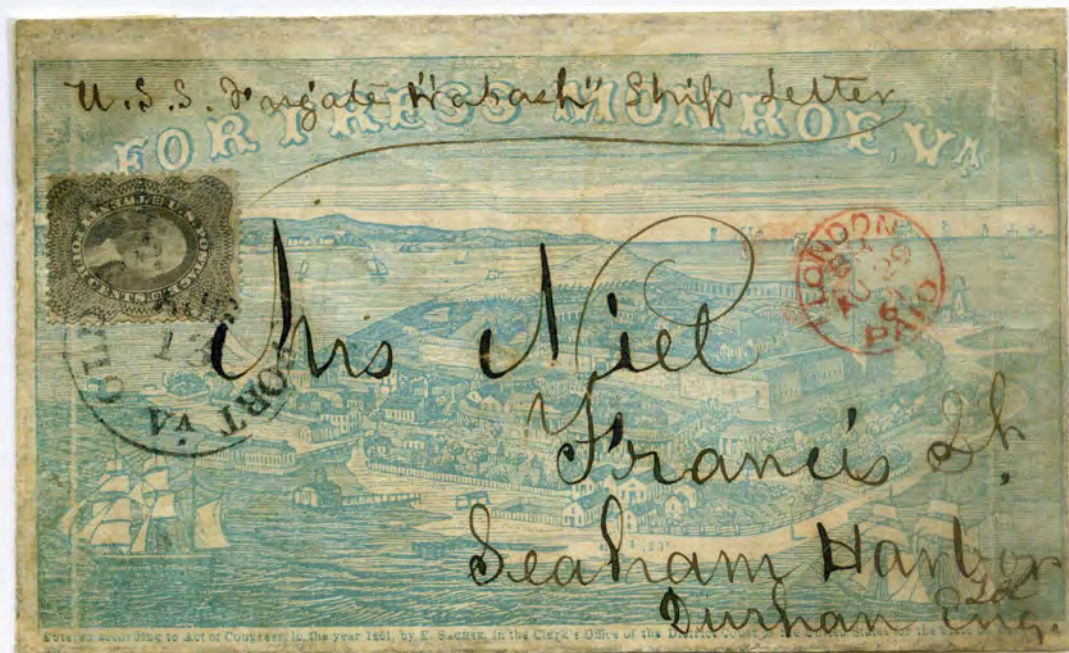 U.S.S. Frigate "Wabash" Ship Letter
FORTRESS MONROE, VA
LONDON
PAID
PORT VA
Mrs Niel
Francis St.
Seaham Harbor
Durhan Eng.
Entered according to Act of Congress, in the year 1861, by E. Sachse, in the Clerk's Office of the District Court of the United States for the State of